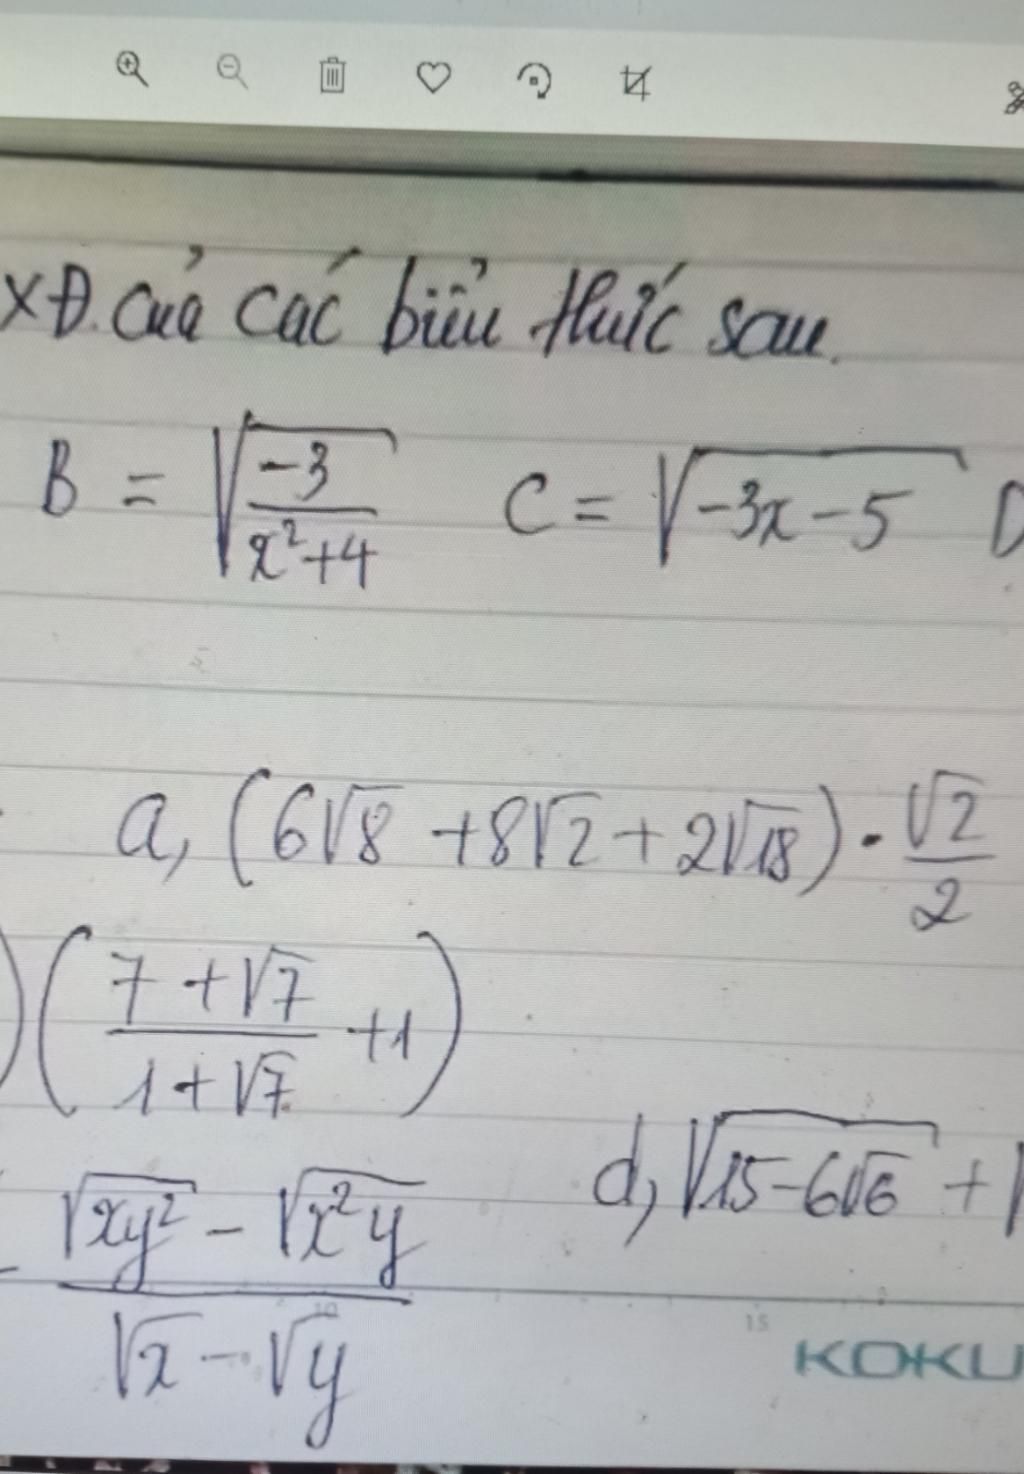 XĐ. của các biểu thức sau.
B = √(-3/(x²+4)) C = √(-3x-5) D
a, (6√8 + 8√2 + 2√18) · √2/2
) ((7+√7)/(1+√7) + 1)
(√(xy²) - √(x²y))/(√x - √y) d, √(15-6√6) + √
10 15
KOKU